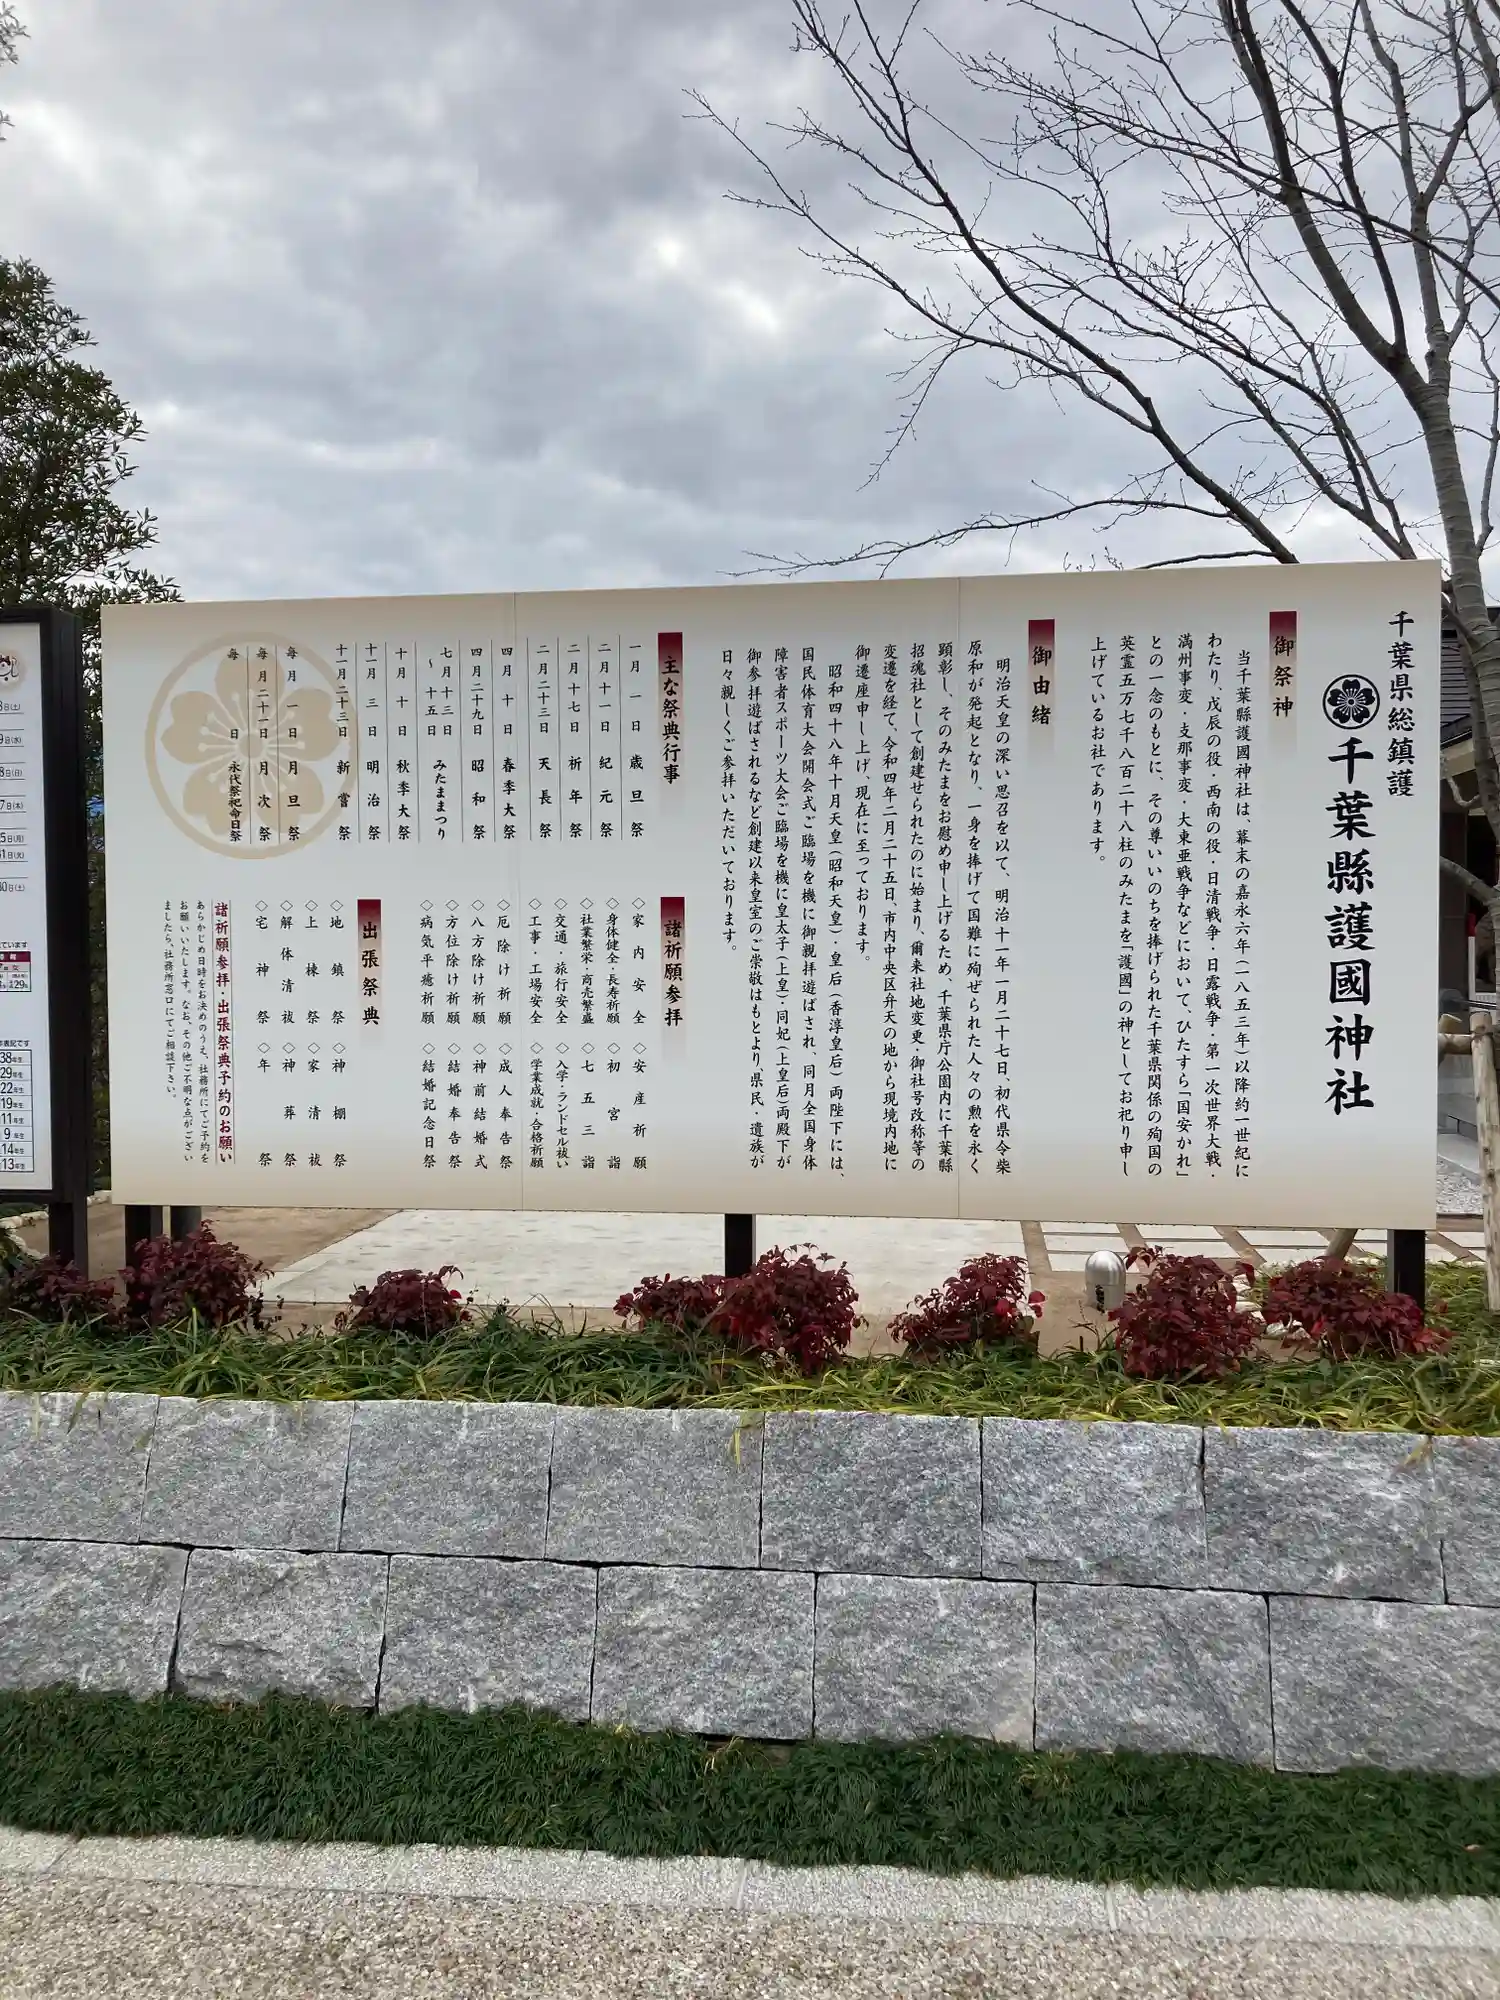 千葉県総鎮護
千葉縣護國神社
御祭神
当千葉縣護國神社は、幕末の嘉永六年(一八五三年)以降約一世紀に
わたり、戊辰の役・西南の役・日清戦争・日露戦争・第一次世界大戦・
満州事変・支那事変・大東亜戦争などにおいて、ひたすら「国安かれ」
との一念のもとに、その尊いいのちを捧げられた千葉県関係の殉国の
英霊五万七千八百二十八柱のみたまを「護國」の神としてお祀り申し
上げているお社であります。
御由緒
明治天皇の深い思召を以て、明治十一年一月二十七日、初代県令柴
原和が発起となり、一身を捧げて国難に殉ぜられた人々の勲を永く
顕彰し、そのみたまをお慰め申し上げるため、千葉県庁公園内に千葉縣
招魂社として創建せられたのに始まり、爾来社地変更・御社号改称等の
変遷を経て、令和四年二月二十五日、市内中央区弁天の地から現境内地に
御遷座申し上げ、現在に至っております。
昭和四十八年十月天皇(昭和天皇)・皇后(香淳皇后)両陛下には、
国民体育大会開会式ご臨場を機に御親拝遊ばされ、同月全国身体
障害者スポーツ大会ご臨場を機に皇太子(上皇)・同妃(上皇后)両殿下が
御参拝遊ばされるなど創建以来皇室のご崇敬はもとより、県民・遺族が
日々親しくご参拝いただいております。
主な祭典行事
一月一日 歳旦祭
二月十一日 紀元祭
二月十七日 祈年祭
二月二十三日 天長祭
四月十日 春季大祭
四月二十九日 昭和祭
七月十三日
〜十五日 みたままつり
十月十日 秋季大祭
十一月三日 明治祭
十一月二十三日 新嘗祭
毎月一日 月旦祭
毎月二十一日 月次祭
毎日 永代祭祀命日祭
諸祈願参拝
◇家内安全 ◇安産祈願
◇身体健全・長寿祈願 ◇初宮詣
◇社業繁栄・商売繁盛 ◇七五三詣
◇交通・旅行安全 ◇入学・ランドセル祓い
◇工事・工場安全 ◇学業成就・合格祈願
◇厄除け祈願 ◇成人奉告祭
◇八方除け祈願 ◇神前結婚式
◇方位除け祈願 ◇結婚奉告祭
◇病気平癒祈願 ◇結婚記念日祭
出張祭典
◇地鎮祭 ◇神棚祭
◇上棟祭 ◇家清祓
◇解体清祓 ◇神葬祭
◇宅神祭 ◇年祭
諸祈願参拝・出張祭典予約のお願い
あらかじめ日時をお決めのうえ、社務所にてご予約を
お願いいたします。なお、その他ご不明な点がござい
ましたら、社務所窓口にてご相談下さい。